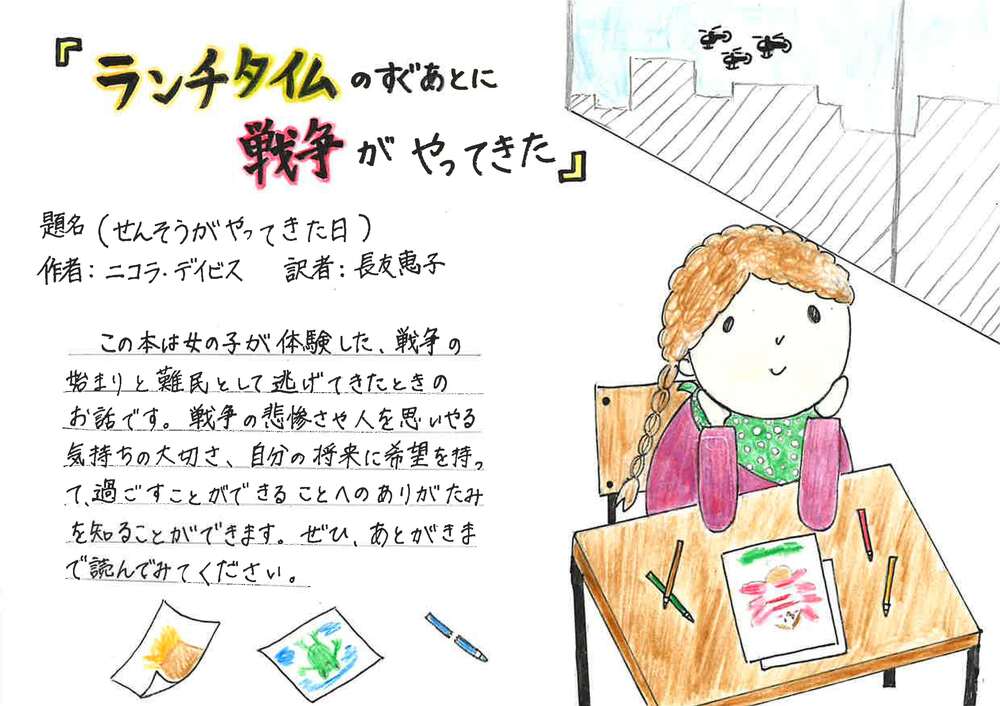 『ランチタイムのすぐあとに
戦争がやってきた』
題名(せんそうがやってきた日)
作者:ニコラ・デイビス 訳者:長友恵子
この本は女の子が体験した、戦争の
始まりと難民として逃げてきたときの
お話です。戦争の悲惨さや人を思いやる
気持ちの大切さ、自分の将来に希望を持っ
て、過ごすことができることへのありがたみ
を知ることができます。ぜひ、あとがきま
で読んでみてください。